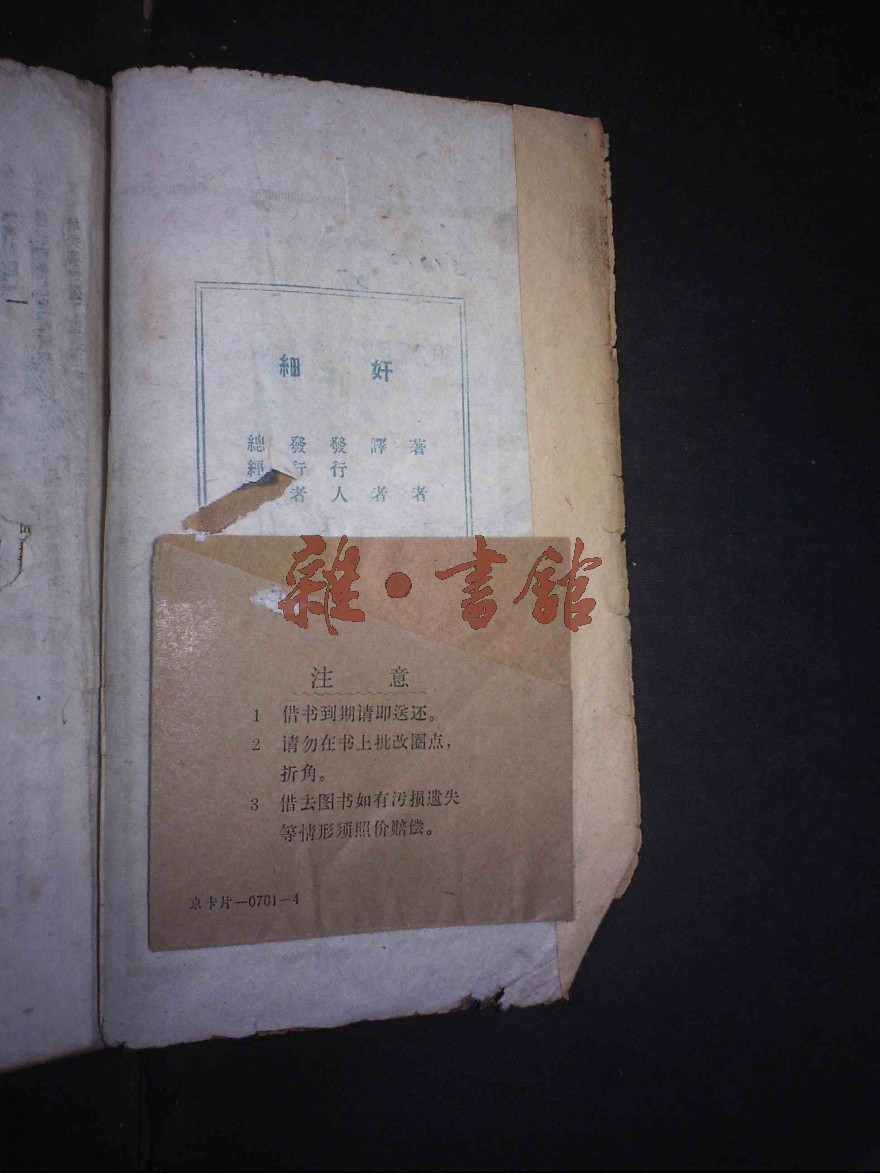 奸細
著者
譯者
發行人
發行者
總經
雜·書館
注意
1 借书到期请即送还。
2 请勿在书上批改圈点，
折角。
3 借去图书如有污损遗失
等情形须照价赔偿。
京卡片—0701—4